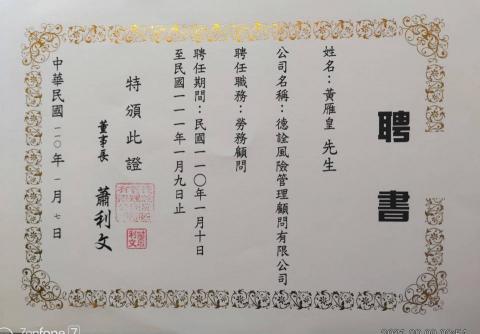 聘書
姓名：黃雁皇 先生
公司名稱：德詮風險管理顧問有限公司
聘任職務：勞務顧問
聘任期間：民國一一〇年一月十日
至民國一一一年一月九日止
特頒此證
董事長 蕭利文
中華民國 一一〇 年 一 月 七 日
Zenfone 7